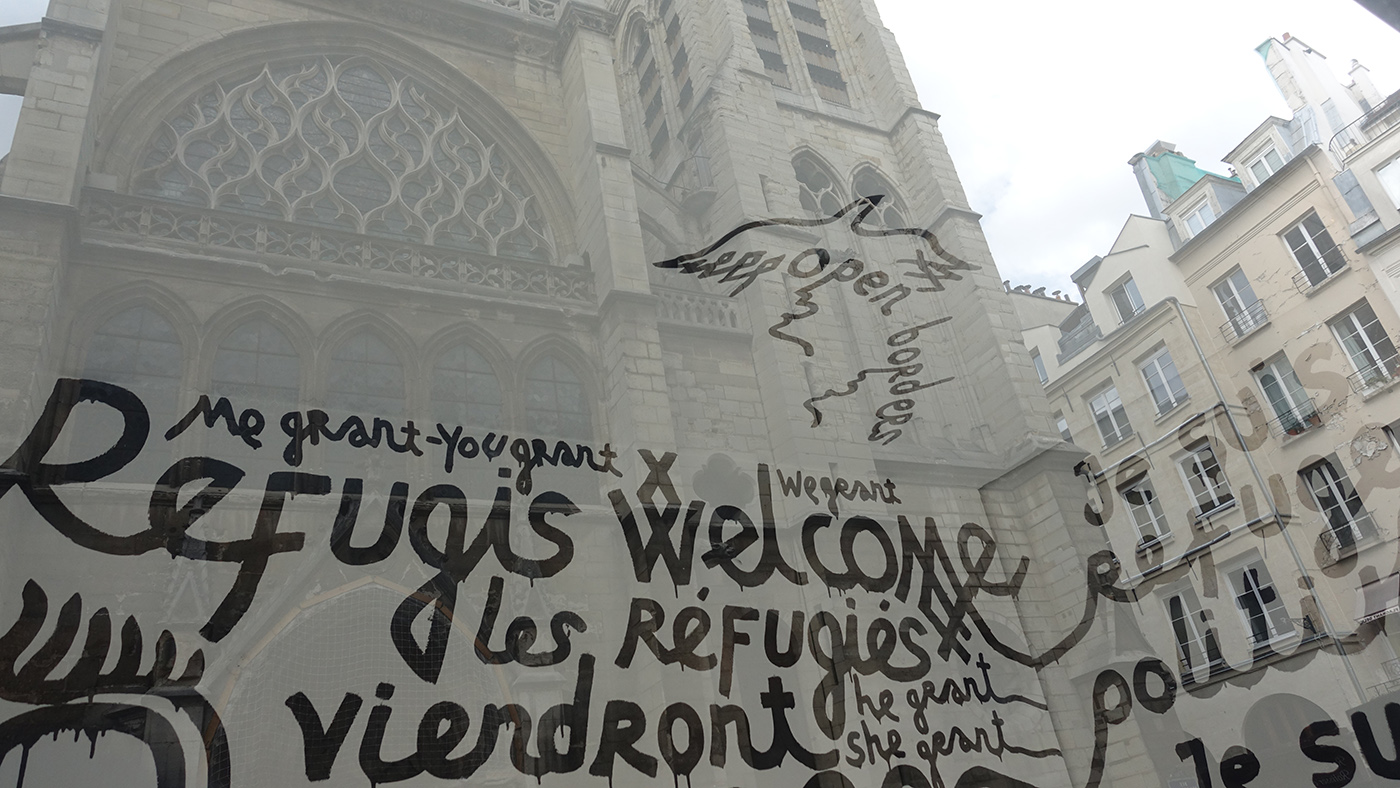 keep open borders
Me grant-you grant
wegrant
Refugis welcome
les Réfugiés
viendront
he grant
she grant
Je suis
refugié
politi
Je su